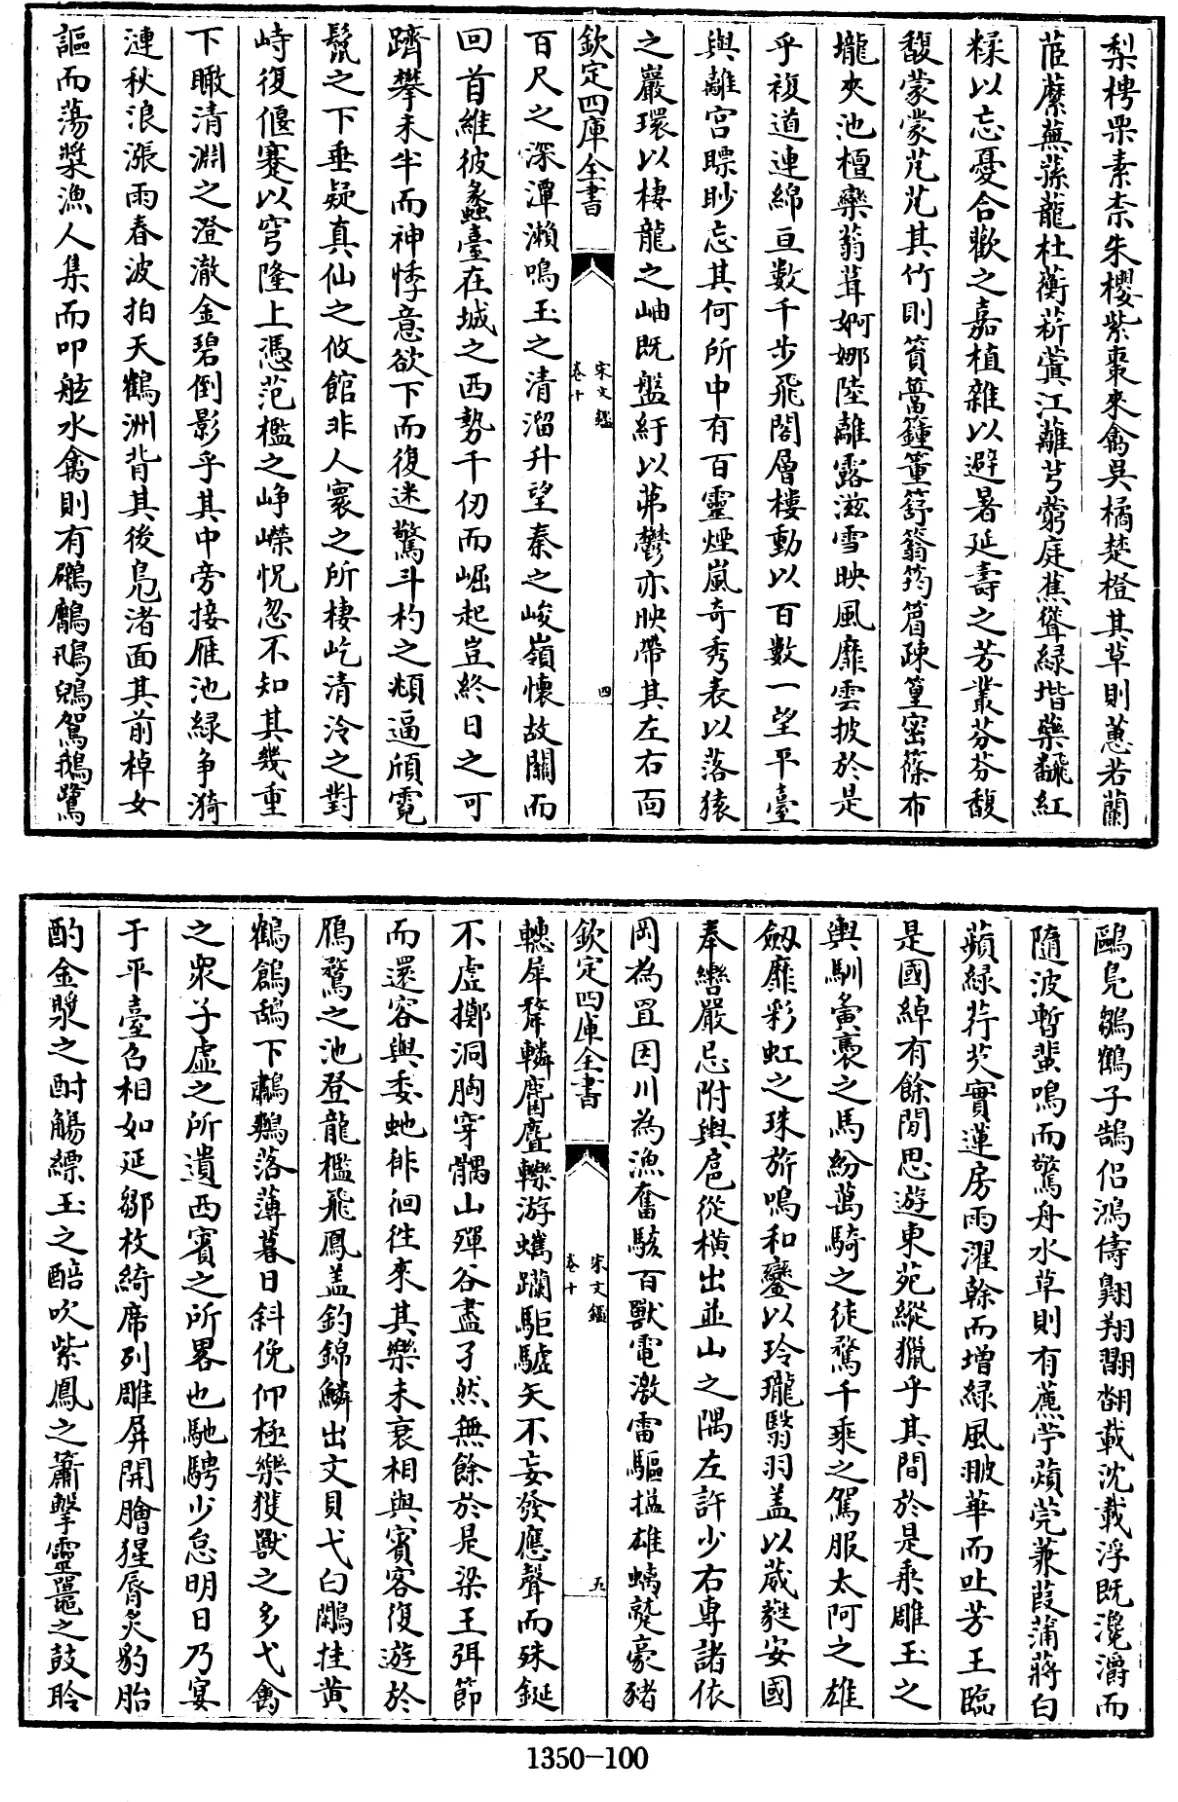 梨樗栗素柰朱櫻紫棗來禽吳橘楚橙其草則蕙若蘭
茝蘪蕪蓀龍杜蘅薪蓂江蘺芎藭庭蕉聳緑堦藥飜紅
糅以忘憂合歡之嘉植雜以避暑延壽之芳叢芬芬馥
馥蒙蒙芃芃其竹則篔簹籦篁䈐篛筠箵疎篁密篠布
壠夾池檀欒蓊茸婀娜陸離露滋雪映風靡雲披於是
乎複道連綿亘數千步飛閣層樓動以百數一望平臺
與離宮瞟眇忘其何所中有百靈煙嵐奇秀表以落猿
之巖環以棲龍之岫既盤紆以茀鬱亦映帶其左右面
欽定四庫全書
宋文鑑
卷十
四
百尺之深潭瀨鳴玉之清溜升望秦之峻嶺懷故關而
回首維彼蠡臺在城之西勢千仞而崛起豈終日之可
躋攀未半而神悸意欲下而復迷驚斗杓之頫逼頎霓
鬣之下垂疑真仙之攸館非人寰之所棲屹清泠之對
峙復偃蹇以穹隆上憑范檻之崢嶸怳忽不知其幾重
下瞰清淵之澄澈金碧倒影乎其中旁接雁池緑爭漪
漣秋浪漲雨春波拍天鶴洲背其後鳧渚面其前棹女
謳而蕩槳漁人集而叩舷水禽則有鸊鷉鳽鵁鴐鵝鷺
鷗鳧鶵鶴子鵠侶鴻儔翺翔翾翻載沈載浮既瀺灂而
隨波暫蜚鳴而驚舟水草則有藨苧薠莞蒹葭蒲蔣白
蘋緑荇芡實蓮房雨濯榦而增緑風披華而吐芳王臨
是國綽有餘閒思遊東苑縱獵乎其間於是乘雕玉之
輿馴䮍褭之馬紛萬騎之徒驁千乘之駕服太阿之雄
劔靡彩虹之珠旂鳴和鑾以玲瓏翳羽蓋以葳蕤安國
奉轡嚴忌附輿扈從橫出並山之隅左許少右專諸依
岡為罝因川為漁奮駭百獸電激雷驅搤雄螭㲋豪豬
欽定四庫全書
宋文鑑
卷十
五
轊犀犛轔麢麠轢游蠵躪駏驉矢不妄發應聲而殊鋋
不虛擲洞胸穿髃山殫谷盡孑然無餘於是梁王弭節
而還容與委蛇徘徊往來其樂未衰相與賓客復遊於
鴈鶩之池登龍檻飛鳳盖釣錦鱗出文貝弋白鷴挂黄
鶴鶬鴰下鸕鶿落薄暮日斜俛仰極樂獲獸之多弋禽
之衆子虛之所遺西賓之所畧也馳騁少怠明日乃宴
于平臺召相如延鄒枚綺席列雕屏開膾猩脣炙豹胎
酌金漿之酎觴縹玉之醅吹紫鳳之簫擊靈鼉之鼓聆
1350-100